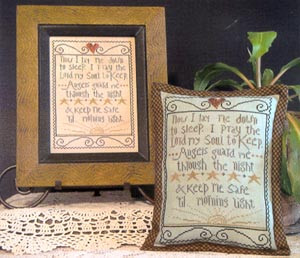 Now I lay me down
to sleep I pray the
Lord my Soul to Keep
Angels guard me
through the night
& keep me safe
'til morning light
Now I lay me down
to sleep I pray the
Lord my Soul to Keep
Angels guard me
through the night
& keep me safe
'til morning light